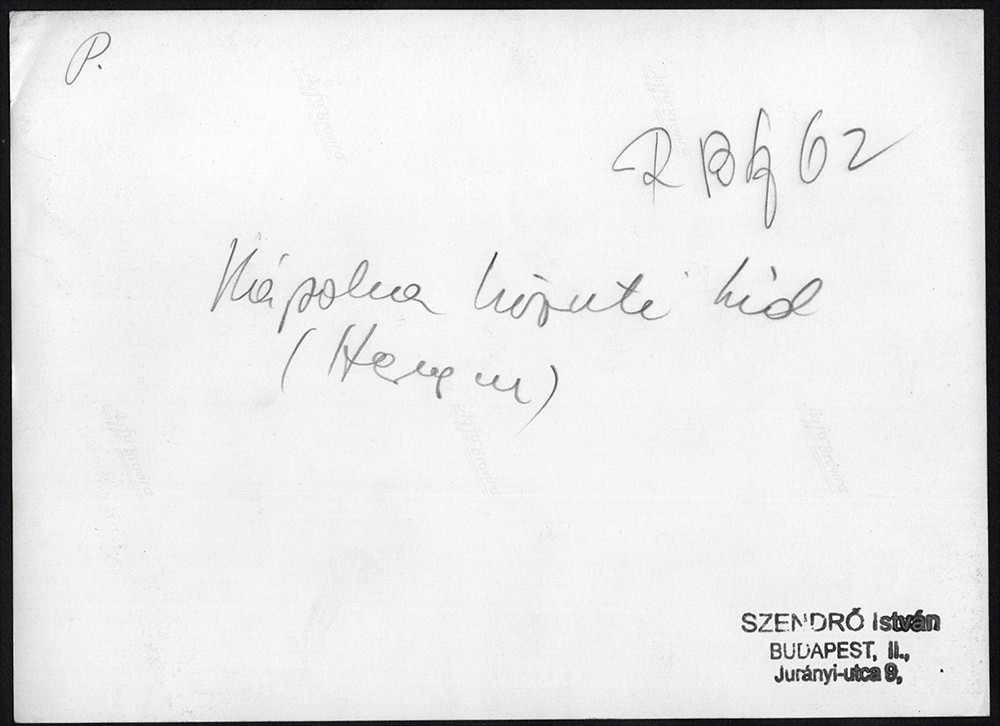 P.
62
Kápolna közuti hid
SZENDRŐ István
BUDAPEST, II.,
Jurányi-utca 9,